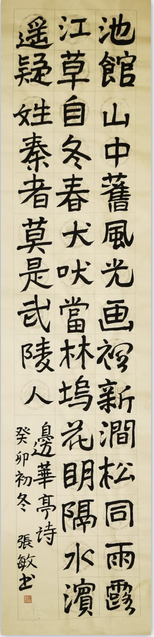 池館山中舊風光画裡新澗松同雨露
江草自冬春犬吠當林塢花明隔水濱
遥疑姓秦者莫是武陵人
邊華亭詩
癸卯初冬 張敏书